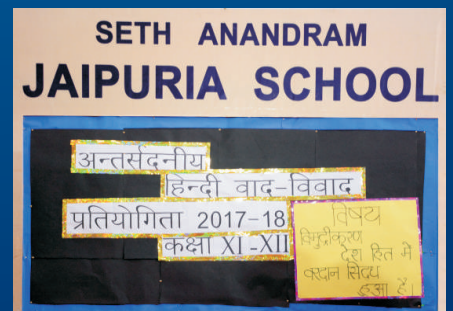 SETH ANANDRAM
JAIPURIA SCHOOL
अन्तर्सदनीय
हिन्दी वाद-विवाद
प्रतियोगिता 2017-18
कक्षा XI-XII
विषय
विमुद्रीकरण
देश हित में
वरदान सिद्ध
हुआ है।